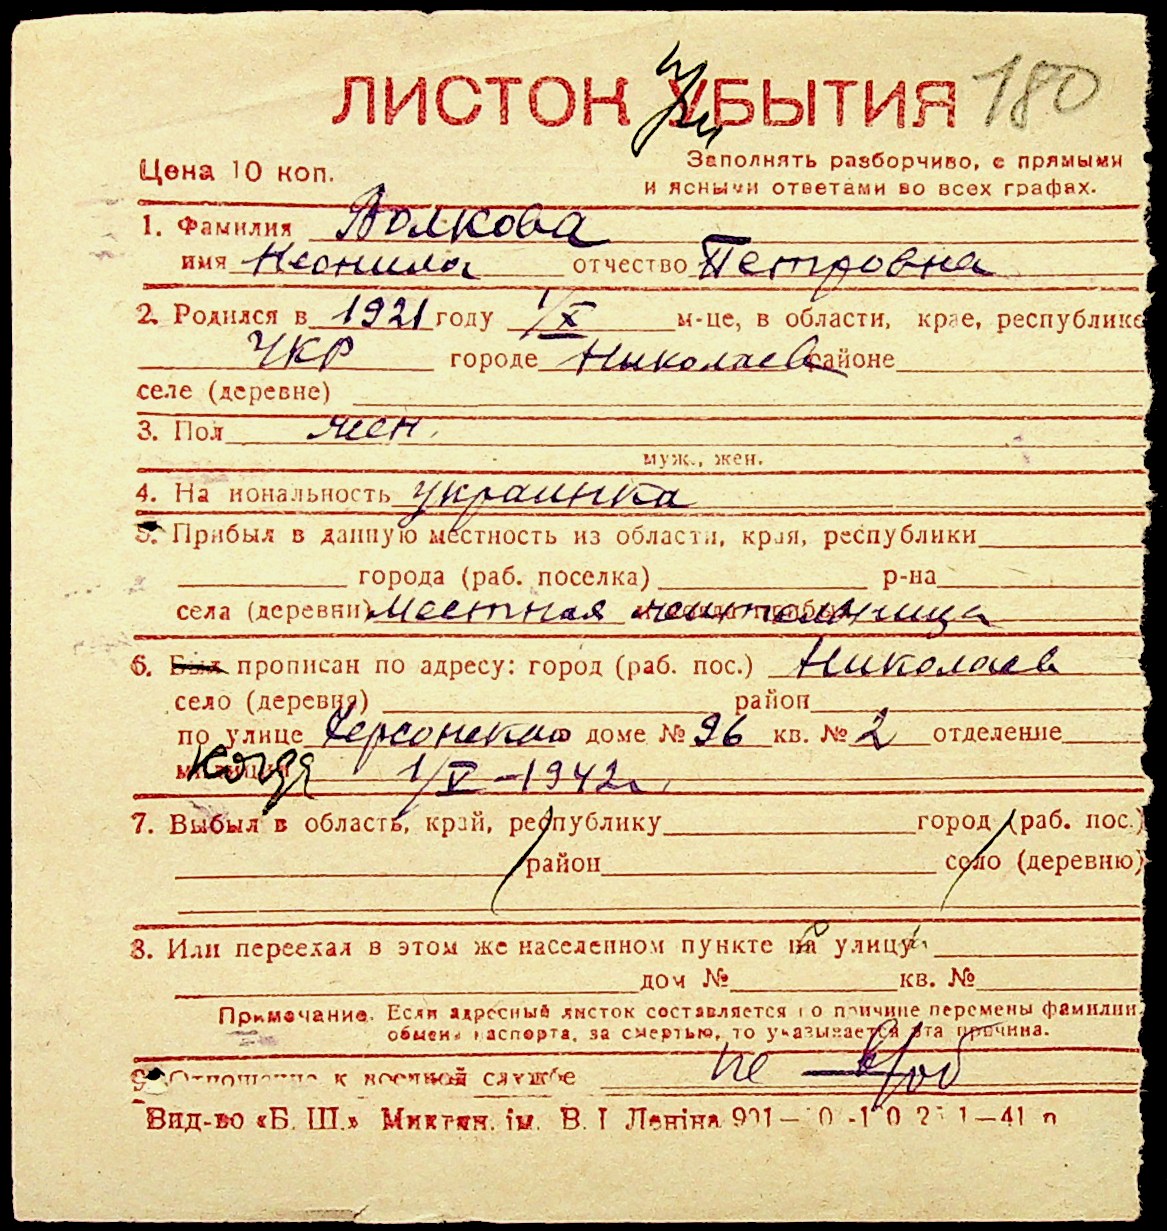 ЛИСТОК УБЫТИЯ 180
Цена 10 коп.
Заполнять разборчиво, с прямыми
и ясными ответами во всех графах.
1. Фамилия Волкова
имя Неонила отчество Петровна
2. Родился в 1921 году 1/X м-це, в области, крае, республике
УКР городе Николаев районе
селе (деревне)
3. Пол жен.
муж., жен.
4. Национальность украинка
5. Прибыл в данную местность из области, края, республики
города (раб. поселка) р-на
села (деревни) местная жительница
6. Был прописан по адресу: город (раб. пос.) Николаев
село (деревня) район
по улице Херсонская доме № 96 кв. № 2 отделение
милиции когда 1/V - 1942 г.
7. Выбыл в область, край, республику город (раб. пос.)
район село (деревню)
8. Или переехал в этом же населенном пункте на улицу
дом № кв. №
Примечание. Если адресный листок составляется по причине перемены фамилии,
обмена паспорта, за смертью, то указывается эта причина.
9. Отношение к военной службе не в/об
Вид-во «Б. Ш.» Миктип. ім. В. І Леніна